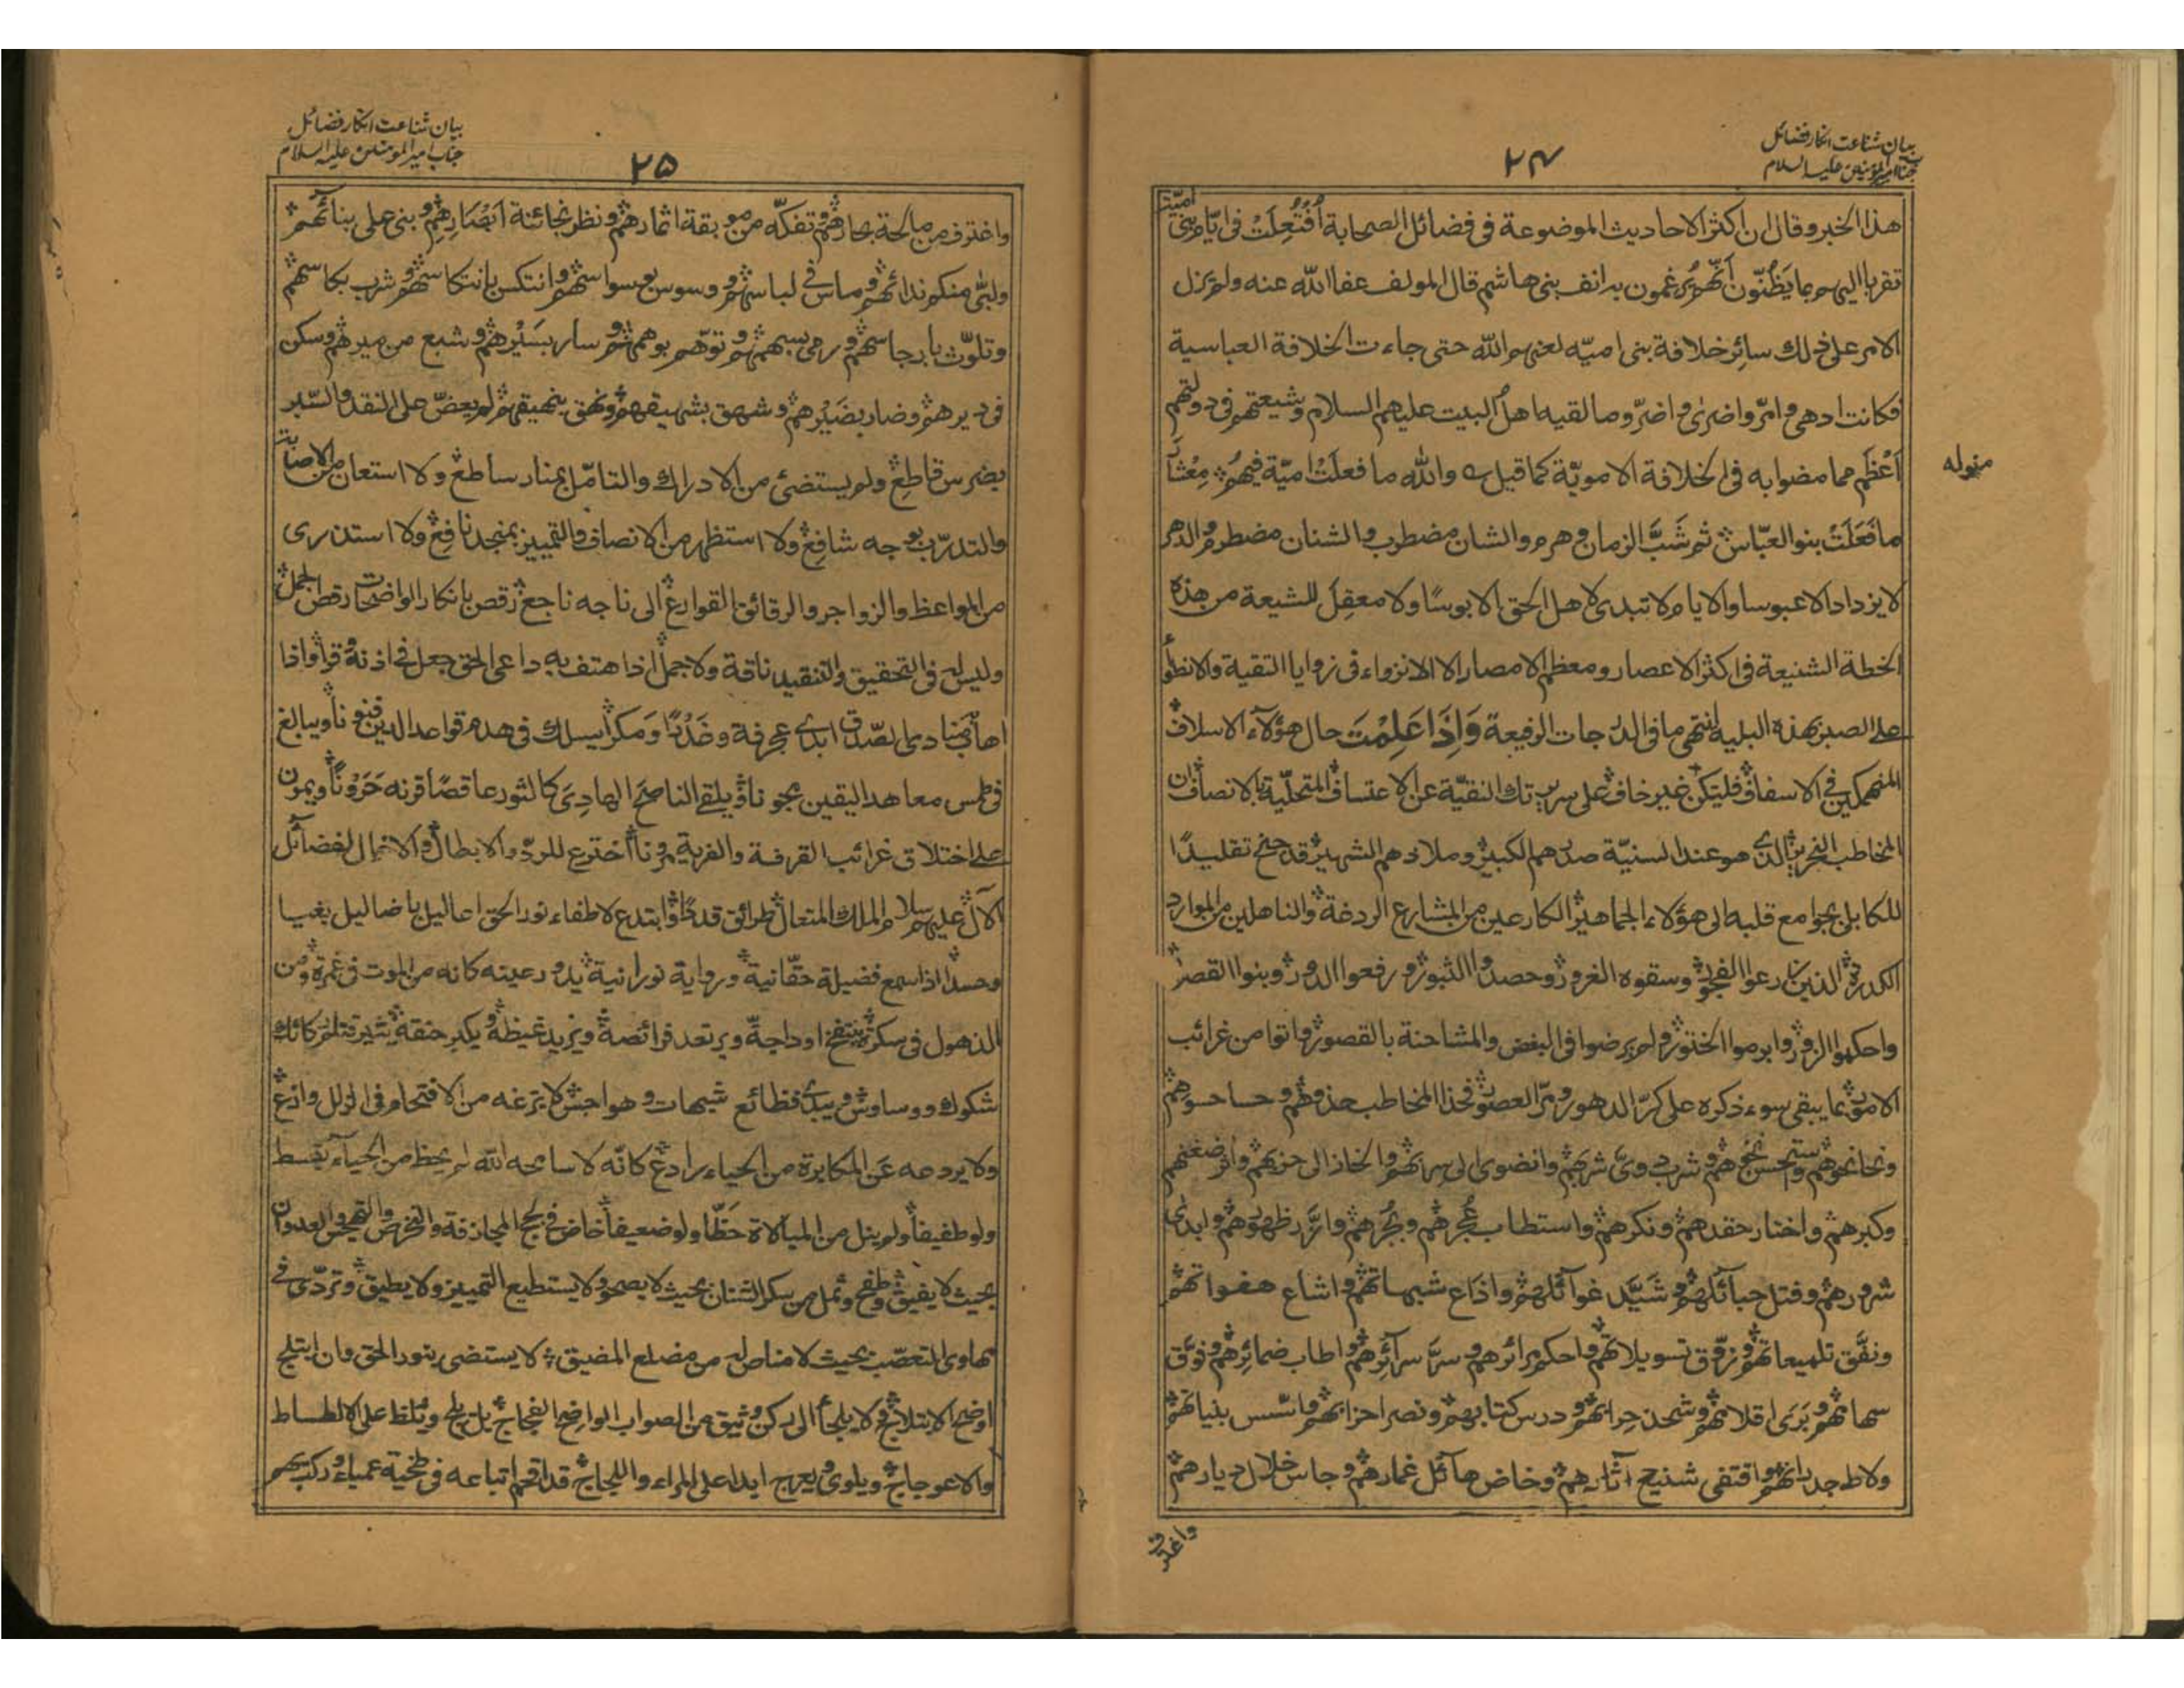 بيان شناعت انكار فضائل
جناب امير المومنين عليه السلام
٢٤
هذا الخبر وقال ان اكثر الاحاديث الموضوعة فى فضائل الصحابة اُفتُعِلَتْ فى ايّام بنى اميّة
تقربا اليهم بما يَظُنّون اَنّهم يُرغمون به انف بنى هاشم قال المولف عفا الله عنه ولم يزل
الامر على ذلك سائِر خلافة بنى اميّه لعنهم الله حتى جاءت الخلافة العباسية
فكانت ادهى وامرّ واضرى واضرّ وما لقيه اهل البيت عليهم السلام وشيعتهم فى دولتهم
اَعْظَم مما مضوا به فى الخلافة الامويّة كما قيل والله ما فعلَتْ اميّة فيهم مِعْشَارَ
مقوله
ما فَعَلَتْ بنو العبّاس ثم شَبَّ الزمان وهرم والشان مضطرب والشنان مضطرم والدهر
لا يزداد الا عبوسا والايام لا تبدى لاهل الحق الا بوسًا ولا معقِل للشيعة من هذه
الخطة الشنيعة فى اكثر الاعصار ومعظم الامصار الا الانزواء فى زوايا التقية والانطواء
على الصبر بهذه البلية انتهى ما فى الدرجات الرفيعة وَاِذَا عَلِمْتَ حال هؤلاء الاسلاف
المنهمكين فى الاسفاف فليكن غير خاف على سريرتك النقيّة عن الاعتساف المتحلّية بالانصاف ان
المخاطب النحرير الذى هو عند السنيّة صدرهم الكبير وملاذهم الشهير قد جنح تقليدًا
للكابلى بجوامع قلبه الى هؤلاء الجماهير الكارعين من المشارع الردغة والناهلين من الموارد
الكدرة الذين زرعوا الفجور وسقوه الغرور وحصدوا الثبور ورفعوا الدور وبنوا القصر
واحكموا الزور وابرموا الختور ولم يرضوا فى البغض والمشاحنة بالقصور واتوا من غرائب
الامور بما يبقى سوء ذكره على كرّ الدهور ومرّ العصور فحذا المخاطب حذوهم وحسا حسوهم
ونحا نحوهم واستحسن نحوهم وشرب دوىّ شربهم وانضوى الى سربهم وانحاز الى حزبهم واثر ضغنهم
وكبرهم واختار حقدهم ونكرهم واستطاب عُجرهم وبُجرهم وازَّر ظهورهم وابدى
شرورهم وفتل حبآئلهم وشَيَّد غوآئلهم واذاع شبهاتهم واشاع هفواتهم
ونفَّق تلميعاتهم وزوّق تسويلاتهم واحكم مرائرهم وسرَّ سرآئِرهم واطاب ضمائِرهم وفوَّق
سهامهم وبَرَى اقلامهم وشحذ حرابهم ودرس كتابهم ونصر احزابهم واسّس بنيانهم
ولاط جدرانهم واقتفى شنيع آثارهم وخاض هآئل غمارهم وجاس خلال ديارهم
واغترف
بيان شناعت انكار فضائل
جناب امير المومنين عليه السلام
٢٥
واغترف من مالحة بحارهم وتفكّه من موبقة اثمارهم ونظر بخائنة اَبْصَارِهِم وبنى على بنائهم
ولبّى منكر ندائهم وماس فى لباسهم ووسوس بوسواسهم وانتكس بانتكاسهم وشرب بكاسهم
وتلوّث بارجاسهم ورمى بسهمهم وتوّهم بوهمهم وسار بسَيْرهم وشبع من ميرهم وسكن
فى ديرهم وضار بضَيْرهم وشهق بشهيقهم ونهق بنهيقهم لم يعضّ على النقد والسّبر
بضرس قاطع ولم يستضئ من الادراك والتامّل بمنار ساطع ولا استعان من الاصابة
والتدرّب بوجه شافع ولا استظهر من الانصاف والتمييز بمنجد نافع ولا استذرى
من المواعظ والزواجر والرقائق القوارع الى ناجه ناجع رقص بانكار الواضحات رقص الجمل
وليس له فى التحقيق والتنقيد ناقة ولا جمل اذا هتف به داعى الحق جعل فى اذنه وقرا واذا
اهاب منادى الصّدق ابدى عجرفة وخَدْنًا وَمكرًا يسلك فى هدم قواعد الدين فنونا ويبالغ
فى طمس معاهد اليقين مجونا ويلقى الناصح الهادِىَ كالثور عاقصًا قرنه حَرَوْنًا ويمرن
على اختلاق غرائب القرفة والفرية مرونا اخترع للردّ والابطال والاخمال لفضائل
الآل عليهم سلام الملك المتعال طرائق قددا وابتدع لاطفاء نور الحق اعاليل باضاليل بغيا
وحسدا اذا سمع فضيلة حقّانية ورواية نورانية يدور عينه كانه من الموت فى غمرة ومن
الذهول فى سكرة ينتفخ اوداجه ويرتعد فرائصه ويزيد غيظه ويكبر حنقه يثير قتلر كائك
شكوك ووساوس ويبدى فظائع شبهات وهواجس لا يزعه من الاقتحام فى الزلل وازع
ولا يردعه عَن المكابرة من الحياء رادع كانّه لا سامحه الله لم يحظ من الحيآء بقسط
ولو طفيفا ولم ينل من المبالاة حَظّا ولو ضعيفا خاض فى لجج المجازفة والتخرص والتهجس والعدوان
بحيث لا يفيق وطفح وثمل من سكر الشنان بحيث لا يصحو ولا يستطيع التمييز ولا يطيق وتردّى فى
مهاوى التعصّب بحيث لا مناص له من مضلع المضيق لا يستضئ بنور الحق وان ابتلج
اوضح الابتلاج ولا يلجأ الى ركن وثيق من الصواب الواضح الفجاج بل يلج ويُلظ على الالطاط
والاعوجاج ويلوى ويعرج ابدا على المراء واللجاج قد اقحم اتباعه فى طخية عمياء وركب بهم